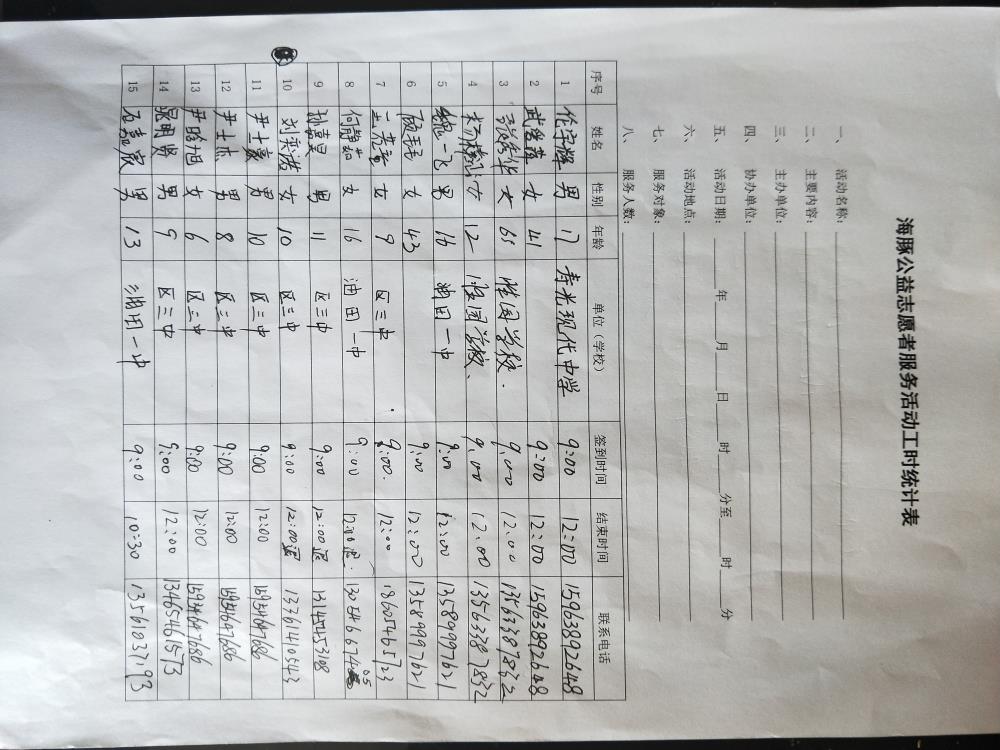 海豚公益志愿者服务活动工时统计表
一、 活动名称:
二、 主要内容:
三、 主办单位:
四、 协办单位:
五、 活动日期: 年 月 日 时 分至 时 分
六、 活动地点:
七、 服务对象:
八、 服务人数:
序号 姓名 性别 年龄 单位(学校) 签到时间 结束时间 联系电话
1 男 17 寿光现代中学 9:00 12:00 15963892648
2 女 41 9:00 12:00 15963892648
3 女 65 胜园学校. 9.00 12.00 13563387832
4 女 12 胜园学校、 9.00 12.00 13563387832
5 魏一飞 男 16 油田一中 9:00 12:00 13589997621
6 顾秀秀 女 43 9:00 12:00 13589997621
7 女 9 区三中 9:00. 12:00 18605465723
8 何静茹 女 16 油田一中 9:00
9 孙嘉昊 男 11 区三中 9:00 12:00退
10 刘奕诺 女 10 区三中 9:00 12:00退 13761410543
11 尹士豪 男 10 区三中 9:00 12:00 15954697686
12 尹士杰 男 8 区三中 9:00 12:00 15954697686
13 尹晗旭 女 6 区三中 9:00 12:00 15954697686
14 男 9 区三中 9:00 12:00 13465461573
15 男 13 油田一中 9:00 10:30 13561037193